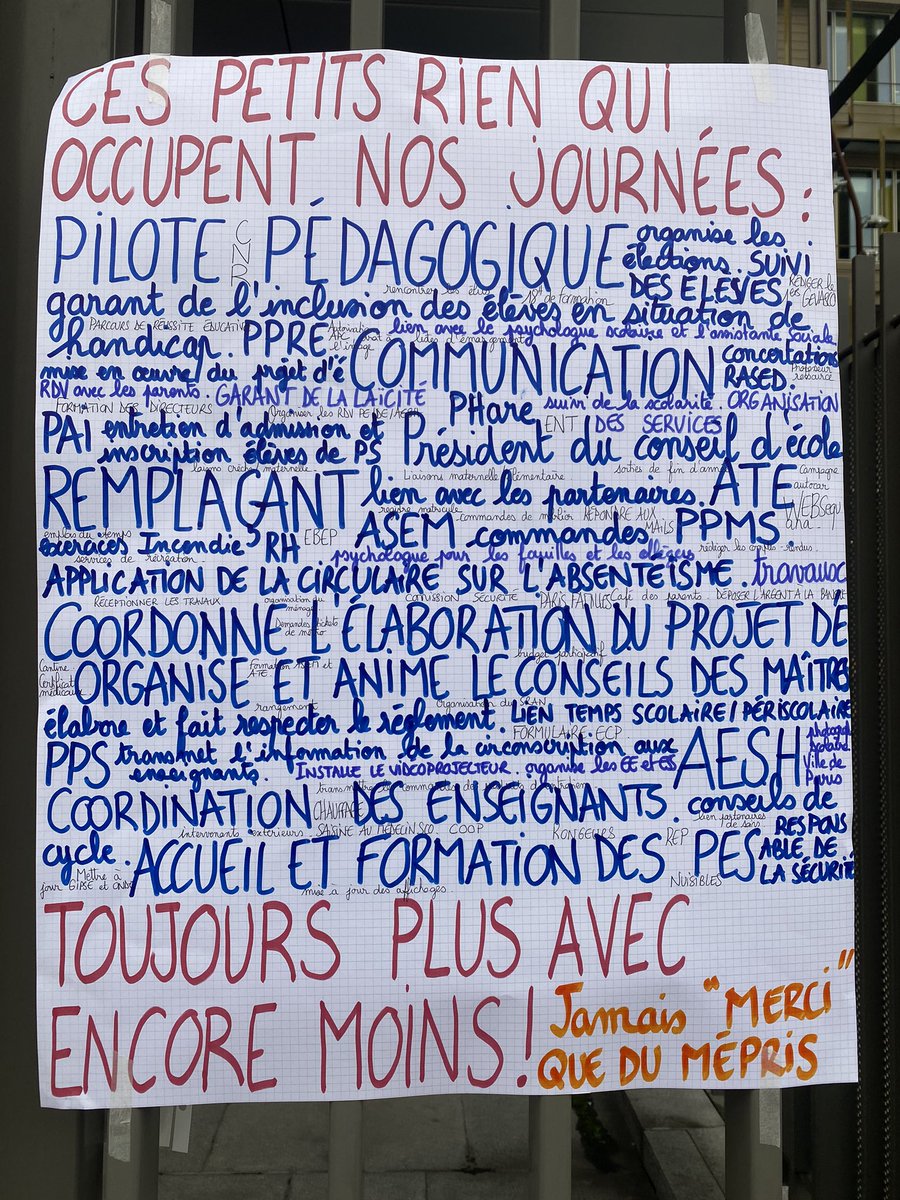 CES PETITS RIEN QUI
OCCUPENT NOS JOURNÉES :
PILOTE CNR PÉDAGOGIQUE organise les
élections. SUIVI
DES ÉLEVES RÉDIGER les GEVASCO
rencontrer les élus 18h de formation
garant de l'inclusion des élèves en situation de
PARCOURS DE RÉUSSITE ÉDUCATIVE
handicap. PPRE lien avec le psychologue scolaire et l'assistante sociale
mise en œuvre du projet d'é COMMUNICATION concertations
RASED Professeur ressource
RDV avec les parents. GARANT DE LA LAÏCITÉ
PHare suivi de la scolarité. ORGANISATION
FORMATION DES DIRECTEURS Organiser les RDV ENT DES SERVICES
PAI entretien d'admission et Président du conseil d'école
inscription élèves de PS
Liaisons maternelle élémentaire sorties de fin d'année campagne
REMPLAÇANT lien avec les partenaires. ATE autocar
WEBSequana.
registre matricule commandes de mobilier RÉPONDRE AUX MAILS
emplois du temps
exercices Incendie RH EBEP ASEM commandes PPMS.
services de récréation. psychologue pour les familles et les collègues rédiger les comptes-rendus
APPLICATION DE LA CIRCULAIRE SUR L'ABSENTÉISME. travaux
RÉCEPTIONNER LES TRAVAUX organisation du ménage COMISSION SÉCURITÉ PARIS FAMILLES Café des parents. DÉPOSER L'ARGENT A LA BANQUE
COORDONNE L'ÉLABORATION DU PROJET D'É
Demandes tickets de métro
Cantine Certificats médicaux Formation ASEM et ATE budget participatif
ORGANISE ET ANIME LE CONSEILS DES MAÎTRES
rangement organisation du SRAN
élabore et fait respecter le règlement. LIEN TEMPS SCOLAIRE/PÉRISCOLAIRE
FORMULAIRE ECP
PPS transmet l'information de la circonscription aux AESH photographe scolaire Ville de Paris
enseignants. INSTALLE LE VIDEOPROJECTEUR. organise les EE et ES
transmettre les commandes des produits d'entretien
COORDINATION CHAUFFAGE DES ENSEIGNANTS. conseils de
intervenants extérieurs. SAISINE AU MÉDECIN SCO. COOP RONGEURS REP lien partenaires de soins RESPONS
cycle. ACCUEIL ET FORMATION DES PES ABLE DE
LA SÉCURITÉ
Mettre à jour mise à jour des affichages. NUISIBLES
TOUJOURS PLUS AVEC
ENCORE MOINS !
Jamais "MERCI"
QUE DU MÉPRIS